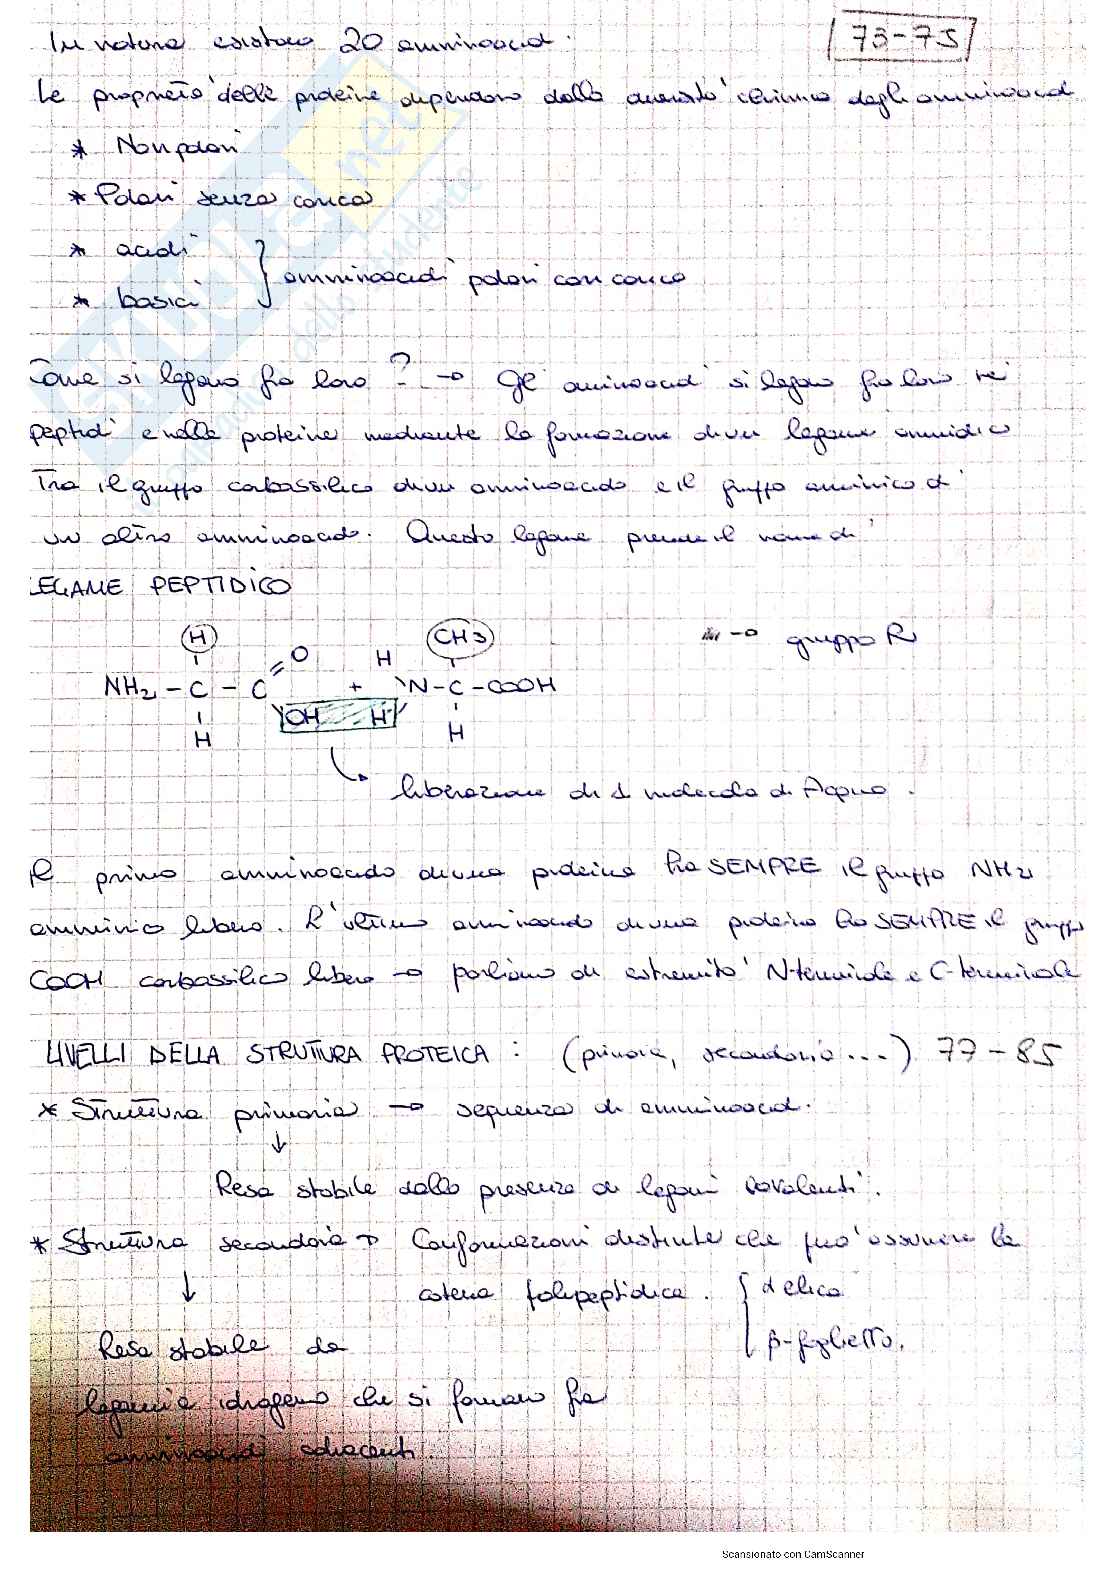 In natura esistono 20 amminoacidi.
73-75
Le proprietà delle proteine dipendono dalla diversità chimica degli amminoacidi
* Non polari
* Polari senza carica
* acidi
* basici
} amminoacidi polari con carica
Come si legano fra loro? → Gli aminoacidi si legano fra loro nei
peptidi e nelle proteine mediante la formazione di un legame ammidico
Tra il gruppo carbossilico di un aminoacido e il gruppo amminico di
un altro amminoacido. Questo legame prende il nome di
LEGAME PEPTIDICO
H CH3 → gruppo R
O H
NH2 - C - C + N - C - COOH
OH H
H H
liberazione di 1 molecola di Acqua.
Il primo amminoacido di una proteina ha SEMPRE il gruppo NH2
amminico libero. L'ultimo aminoacido di una proteina ha SEMPRE il gruppo
COOH carbossilico libero → parliamo di estremità N-terminale e C-terminale
LIVELLI DELLA STRUTTURA PROTEICA: (primaria, secondaria...) 77-85
* Struttura primaria → sequenza di amminoacidi.
↓
Resa stabile dalla presenza di legami covalenti.
* Struttura secondaria → Conformazioni distinte che può assumere la
↓ catena polipeptidica. { α elica
β-foglietto.
Resa stabile da
legami a idrogeno che si formano fra
amminoacidi adiacenti.
Scansionato con CamScanner